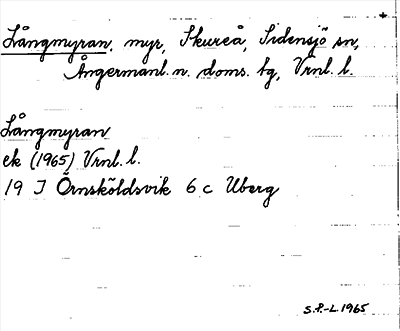 Långmyran, myr, Skureå, Sidensjö sn,
Ångermanl. n. doms. tg, Vrnl. l.
Långmyran
ek (1965) Vrnl. l.
19 J Örnsköldsvik 6 c Uberg
S.P.-L 1965